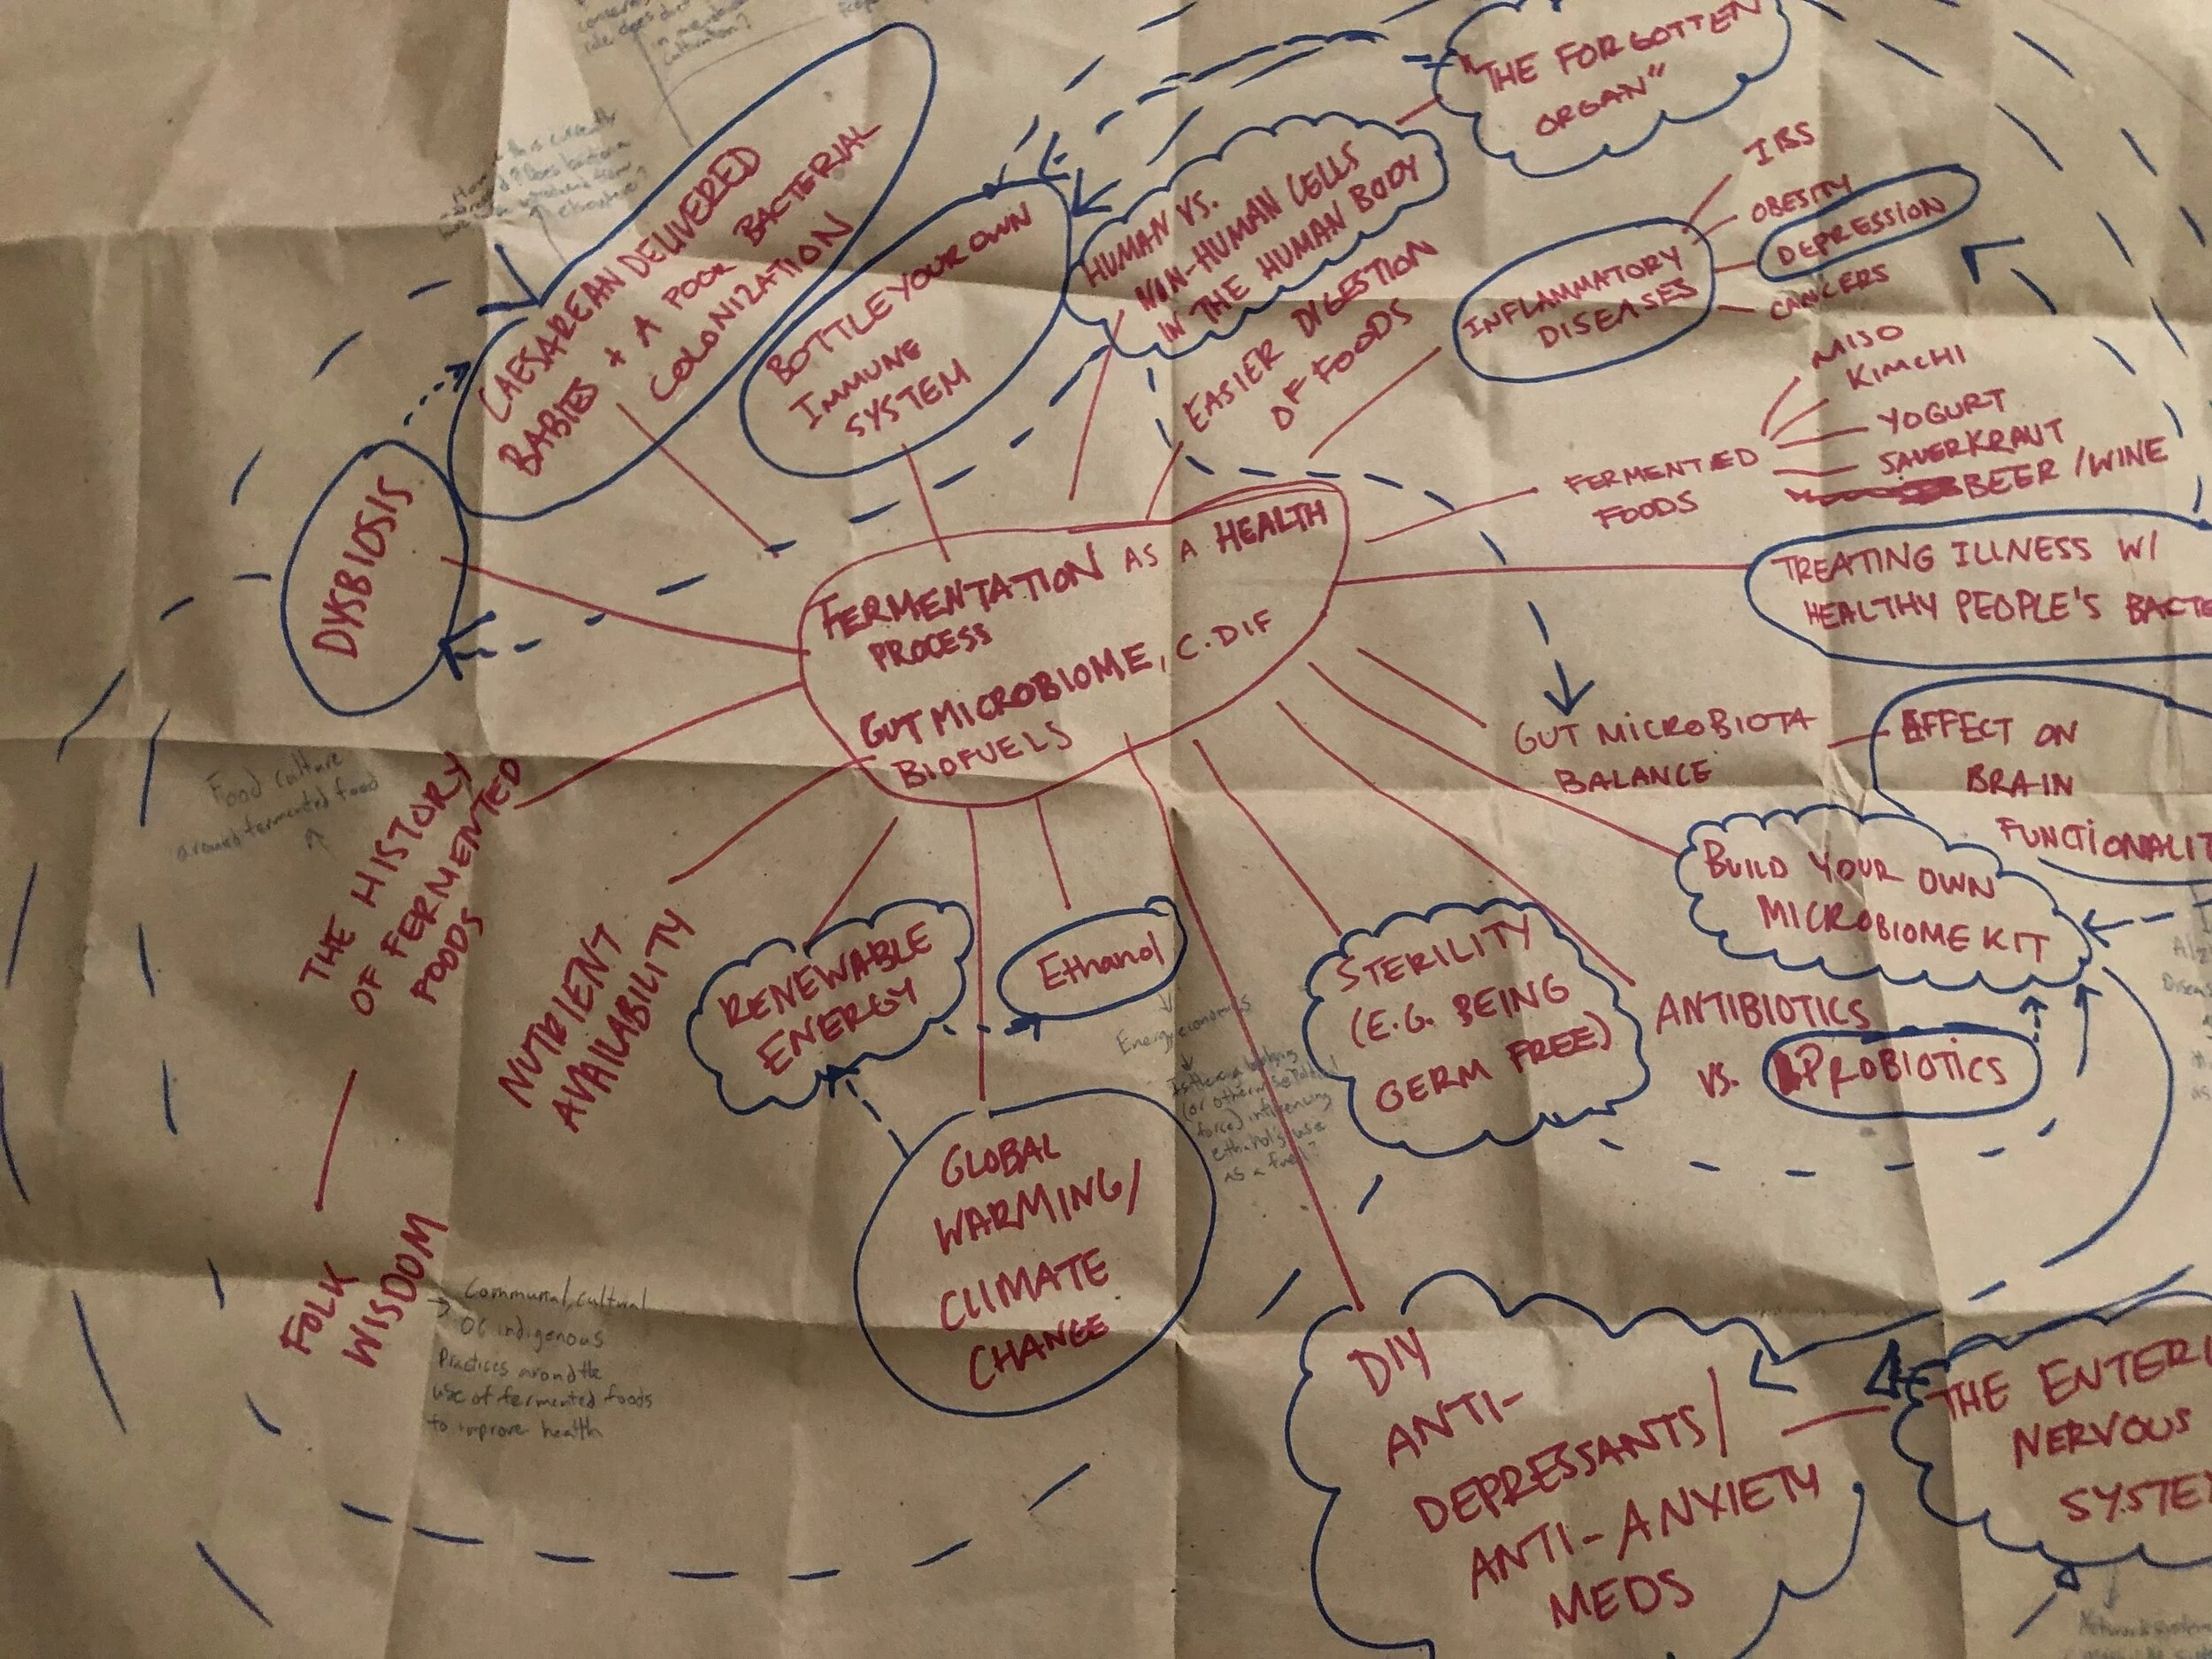 "THE FORGOTTEN
ORGAN"
cultivation?
CAESAREAN DELIVERED
BABIES + A POOR BACTERIAL
COLONIZATION
BOTTLE YOUR OWN
IMMUNE
SYSTEM
HUMAN VS.
NON-HUMAN CELLS
IN THE HUMAN BODY
EASIER DIGESTION
OF FOODS
INFLAMMATORY
DISEASES
IBS
OBESITY
DEPRESSION
CANCERS
FERMENTED
FOODS
MISO
KIMCHI
YOGURT
SAUERKRAUT
BEER/WINE
DYSBIOSIS
FERMENTATION AS A HEALTH
PROCESS
GUT MICROBIOME, C.DIF
BIOFUELS
TREATING ILLNESS W/
HEALTHY PEOPLE'S BACTE
GUT MICROBIOTA
BALANCE
EFFECT ON
BRAIN
FUNCTIONALIT
BUILD YOUR OWN
MICROBIOME KIT
Food culture
around fermented food
THE HISTORY
OF FERMENTED
FOODS
NUTRIENT
AVAILABILITY
RENEWABLE
ENERGY
Ethanol
Energy economics
Is there a lobbying
force) influencing
ethanol's use
as a fuel?
STERILITY
(E.G. BEING
GERM FREE)
ANTIBIOTICS
VS. PROBIOTICS
GLOBAL
WARMING/
CLIMATE
CHANGE
FOLK
WISDOM
Communal, cultural
OG indigenous
Practices around the
use of fermented foods
to improve health
DIY
ANTI-
DEPRESSANTS/
ANTI-ANXIETY
MEDS
THE ENTERI
NERVOUS
SYSTE